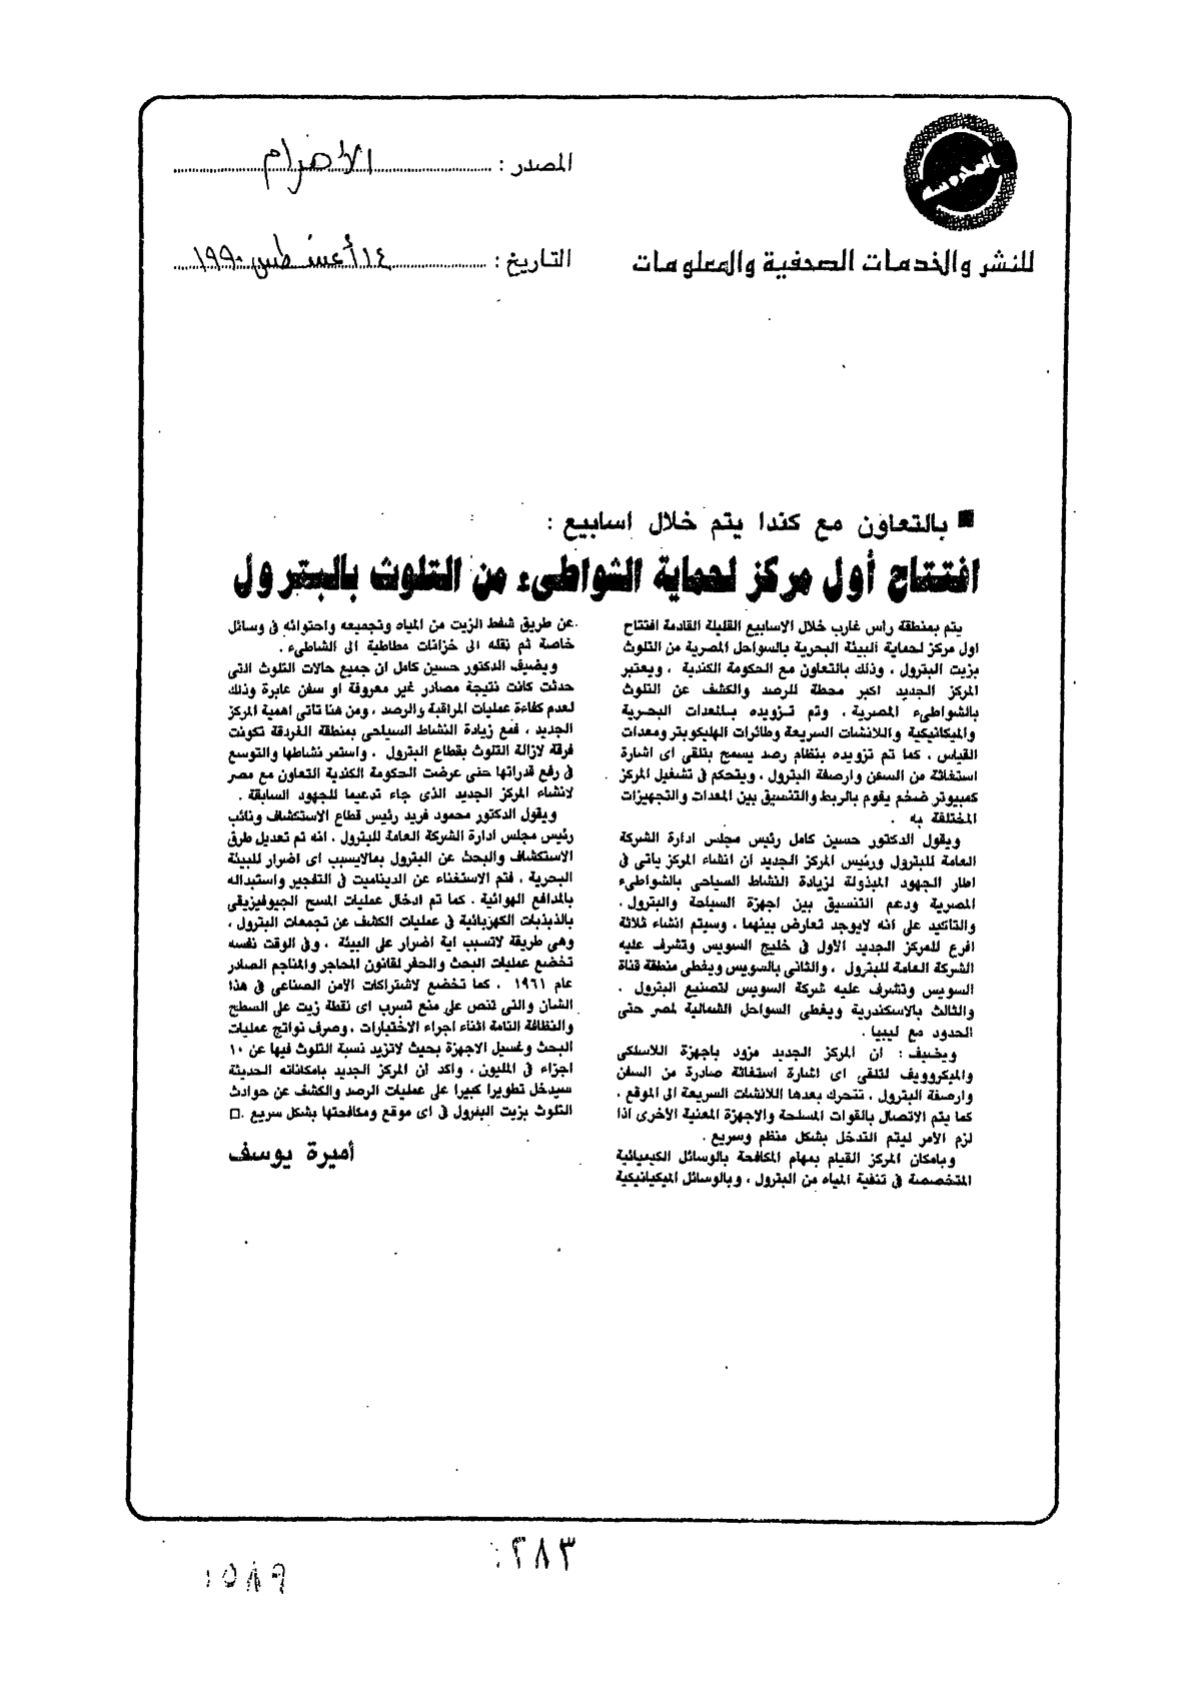 المصدر : الأهرام
للنشر والخدمات الصحفية والمعلومات
التاريخ : ١٤ أغسطس ١٩٩٠
■ بالتعاون مع كندا يتم خلال اسابيع :
افتتاح أول مركز لحماية الشواطىء من التلوث بالبترول
يتم بمنطقة راس غارب خلال الاسابيع القليلة القادمة افتتاح
اول مركز لحماية البيئة البحرية بالسواحل المصرية من التلوث
بزيت البترول ، وذلك بالتعاون مع الحكومة الكندية ، ويعتبر
المركز الجديد اكبر محطة للرصد والكشف عن التلوث
بالشواطىء المصرية ، وتم تزويده بالمعدات البحرية
والميكانيكية واللانشات السريعة وطائرات الهليكوبتر ومعدات
القياس ، كما تم تزويده بنظام رصد يسمح بتلقى اى اشارة
استغاثة من السفن وارصفة البترول ، ويتحكم فى تشغيل المركز
كمبيوتر ضخم يقوم بالربط والتنسيق بين المعدات والتجهيزات
المختلفة به .
ويقول الدكتور حسين كامل رئيس مجلس ادارة الشركة
العامة للبترول ورئيس المركز الجديد ان انشاء المركز ياتى فى
اطار الجهود المبذولة لزيادة النشاط السياحى بالشواطىء
المصرية ودعم التنسيق بين اجهزة السياحة والبترول .
والتاكيد على انه لايوجد تعارض بينهما ، وسيتم انشاء ثلاثة
افرع للمركز الجديد الاول فى خليج السويس وتشرف عليه
الشركة العامة للبترول ، والثانى بالسويس ويغطى منطقة قناة
السويس وتشرف عليه شركة السويس لتصنيع البترول .
والثالث بالاسكندرية ويغطى السواحل الشمالية لمصر حتى
الحدود مع ليبيا .
ويضيف : ان المركز الجديد مزود باجهزة اللاسلكى
والميكروويف لتلقى اى اشارة استغاثة صادرة من السفن
وارصفة البترول ، تتحرك بعدها اللانشات السريعة الى الموقع ،
كما يتم الاتصال بالقوات المسلحة والاجهزة المعنية الأخرى اذا
لزم الأمر ليتم التدخل بشكل منظم وسريع .
وبامكان المركز القيام بمهام المكافحة بالوسائل الكيميائية
المتخصصة فى تنقية المياه من البترول ، وبالوسائل الميكيانيكية
عن طريق شفط الزيت من المياه وتجميعه واحتوائه فى وسائل
خاصة ثم نقله الى خزانات مطاطية الى الشاطىء .
ويضيف الدكتور حسين كامل ان جميع حالات التلوث التى
حدثت كانت نتيجة مصادر غير معروفة او سفن عابرة وذلك
لعدم كفاءة عمليات المراقبة والرصد ، ومن هنا تاتى اهمية المركز
الجديد ، فمع زيادة النشاط السياحى بمنطقة الغردقة تكونت
فرقة لازالة التلوث بقطاع البترول ، واستمر نشاطها والتوسع
فى رفع قدراتها حتى عرضت الحكومة الكندية التعاون مع مصر
لانشاء المركز الجديد الذى جاء تدعيما للجهود السابقة .
ويقول الدكتور محمود فريد رئيس قطاع الاستكشاف ونائب
رئيس مجلس ادارة الشركة العامة للبترول ، انه تم تعديل طرق
الاستكشاف والبحث عن البترول بمالايسبب اى اضرار للبيئة
البحرية ، فتم الاستغناء عن الديناميت فى التفجير واستبداله
بالمدافع الهوائية ، كما تم ادخال عمليات المسح الجيوفيزيقى
بالذبذبات الكهربائية فى عمليات الكشف عن تجمعات البترول ،
وهى طريقة لاتسبب اية اضرار على البيئة ، وفى الوقت نفسه
تخضع عمليات البحث والحفر لقانون المحاجر والمناجم الصادر
عام ١٩٦١ ، كما تخضع لاشتراكات الامن الصناعى فى هذا
الشان والتى تنص على منع تسرب اى نقطة زيت على السطح
والنظافة التامة اثناء اجراء الاختبارات ، وصرف نواتج عمليات
البحث وغسيل الاجهزة بحيث لاتزيد نسبة التلوث فيها عن ١٠
اجزاء فى المليون ، واكد ان المركز الجديد بامكاناته الحديثة
سيدخل تطويرا كبيرا على عمليات الرصد والكشف عن حوادث
التلوث بزيت البترول فى اى موقع ومكافحتها بشكل سريع . □
أميرة يوسف
٢٨٣